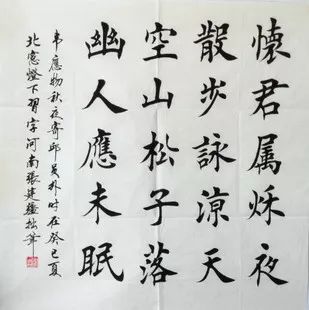 懷君属秌夜
散步詠涼天
空山松子落
幽人應未眠
韦應物秋夜寄邱员外时在癸巳夏
北窓燈下習字河南張建極拙筆